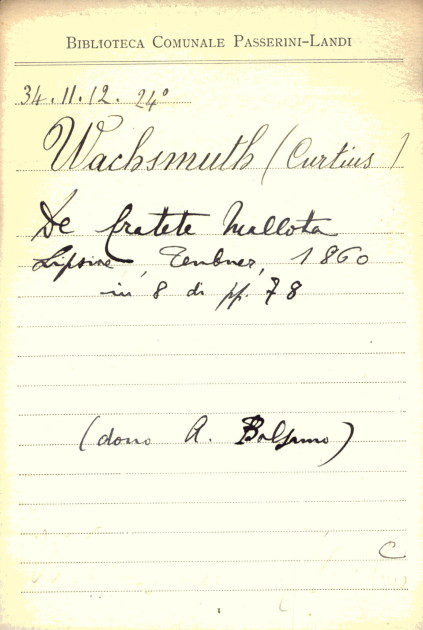 BIBLIOTECA COMUNALE PASSERINI-LANDI
34.11.12. 24°
Wachsmuth (Curtius)
De Cratete Mallota
Lipsiae, Teubner, 1860
in 8 di pp. 78
(dono A. Balsamo)
C
1